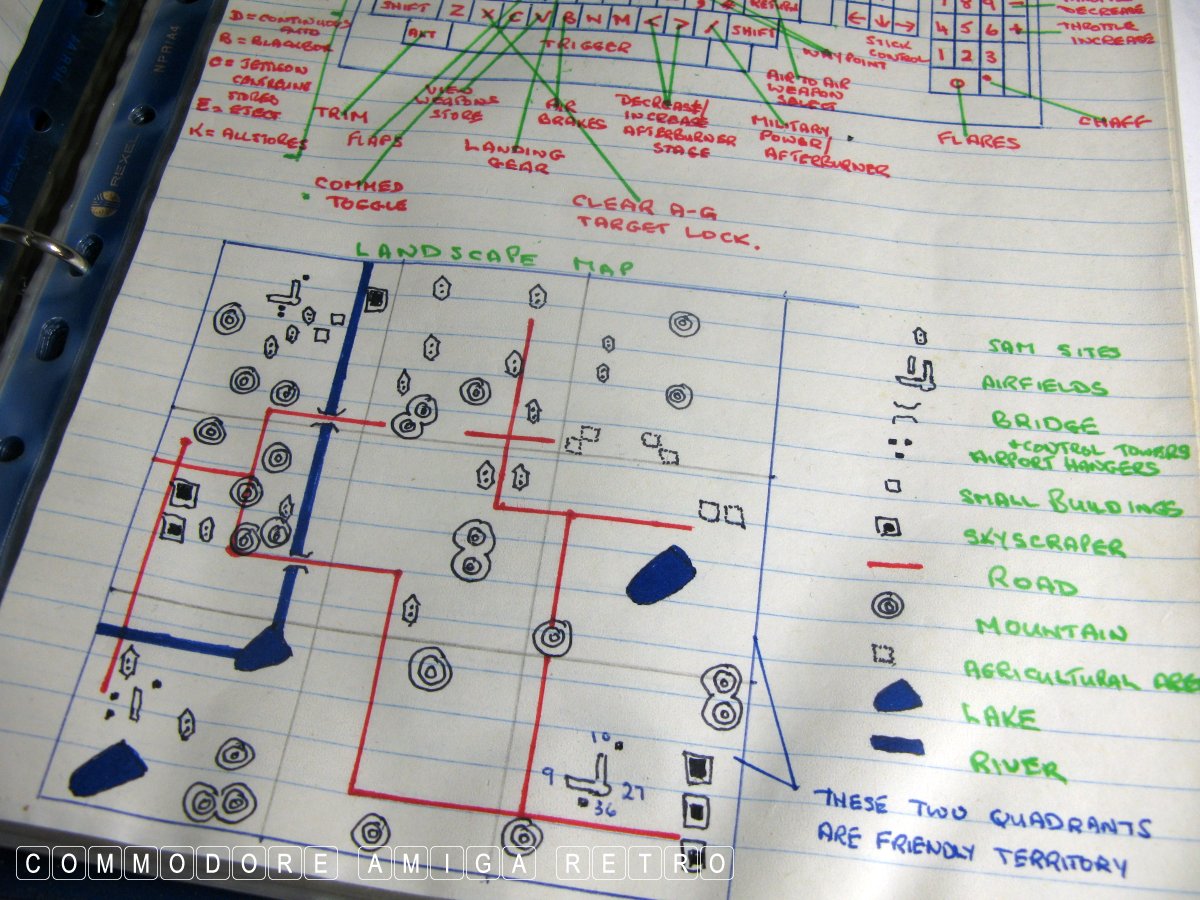 D = CONTINUOUS
AUTO
B = BLACKBOX
C = JETTISON
STORES
E = EJECT
K = ALL STORES
SHIFT Z X C V B N M < > / SHIFT
RETURN
ALT
TRIGGER
← ↓ →
STICK
CONTROL
7 8 9 -
4 5 6 +
1 2 3
0 .
THROTTLE
DECREASE
THROTTLE
INCREASE
WAYPOINT
AIR TO AIR
WEAPON
SELECT
TRIM
FLAPS
VIEW
WEAPONS
STORE
LANDING
GEAR
AIR
BRAKES
DECREASE/
INCREASE
AFTERBURNER
STAGE
MILITARY
POWER/
AFTERBURNER
FLARES
CHAFF
COMMED
TOGGLE
CLEAR A-G
TARGET LOCK.
LANDSCAPE MAP
SAM SITES
AIRFIELDS
BRIDGE
+ CONTROL TOWERS
AIRPORT HANGERS
SMALL BUILDINGS
SKYSCRAPER
ROAD
MOUNTAIN
AGRICULTURAL ARE
LAKE
RIVER
10
9
27
36
THESE TWO QUADRANTS
ARE FRIENDLY TERRITORY
REXEL
NPR/A4
COMMODORE AMIGA RETRO